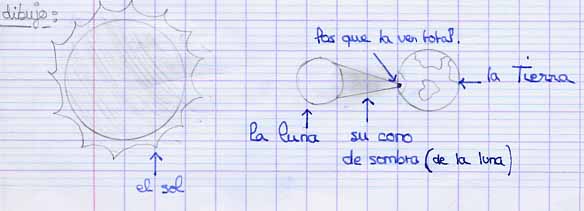 dibujo:
los que la ven total.
la Tierra
la luna
su cono
de sombra (de la luna)
el sol